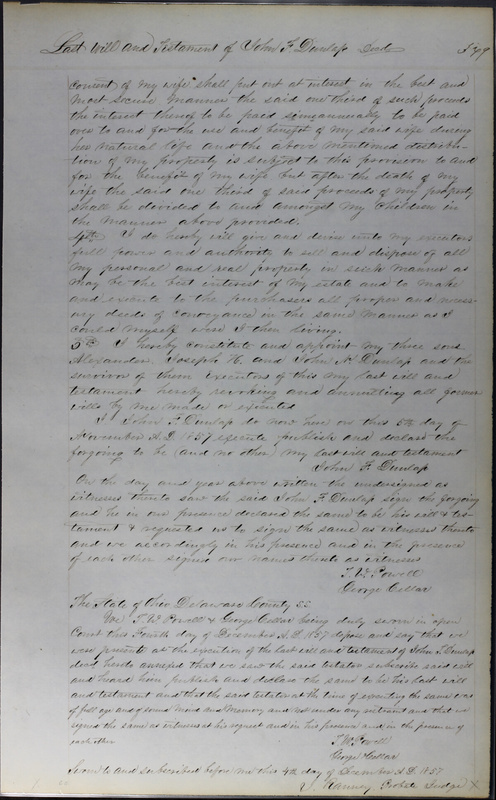 Last Will and Testament of John F Dunlap Decd 579
consent of my wife shall put out at interest in the best and
most secure manner the said one third of such proceeds
the interest thereof to be paid semiannually to be paid
over to and for the use and benefit of my said wife during
her natural life and the above mentioned distribu-
tion of my property is subject to this provision to and
for the benefit of my wife but after the death of my
wife the said one third of said proceeds of my property
shall be divided to and amongst my children in
the manner above provided.
4th I do hereby will give and devise unto my executors
full power and authority to sell and dispose of all
my personal and real property in such manner as
may be the best interest of my estate and to make
and execute to the purchasers all proper and necess-
ary deeds of conveyance in the same manner as I
could myself were I then living.
5th I hereby constitute and appoint my three sons
Alexander, Joseph H. and John N. Dunlap and the
survivor of them Executors of this my last will and
testament hereby revoking and annulling all former
wills by me made or executed
I John F Dunlap do now here on this 5th day of
November A.D. 1857 execute publish and declare the
forgoing to be (and no other) my last will and testament
John F Dunlap
On the day and year above written the undersigned as
witnesses thereto saw the said John F. Dunlap sign the forgoing
and he in our presence declared the same to be his will & tes-
tament & requested us to sign the same as witnesses thereto
and we accordingly in his presence and in the presence
of each other signed our names thereto as witnesses
T. W. Powell
George Cellar
The State of Ohio Delaware County SS
We T. W. Powell & George Cellar being duly sworn in open
Court this Fourth day of December A.D. 1857 depose and say that we
were present at the execution of the last will and testament of John F. Dunlap
decd hereto annexed that we saw the said testator subscribe said will
and heard him publish and declare the same to be his last will
and testament and that the said testator at the time of executing the same was
of full age and of sound mind and memory and not under any restraint and that we
signed the same as witnesses at his request and in his presence and in the presence of
each other
T. W. Powell
George Cellar
Sworn to and subscribed before me this 4th day of December A.D. 1857
Ranney, Probate Judge